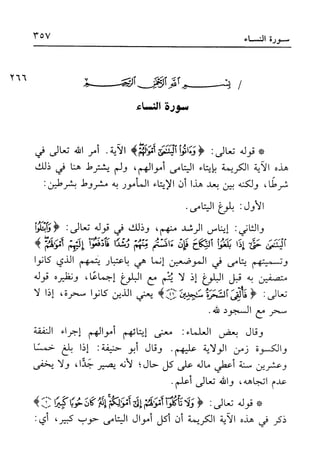 سورة النساء ٣٥٧
٢٦٦
/ بسم الله الرحمن الرحيم
سورة النساء
* قوله تعالى: ﴿وَءَاتُوا الْيَتَٰمَىٰٓ أَمْوَٰلَهُمْ﴾ الآية. أمر الله تعالى في
هذه الآية الكريمة بإيتاء اليتامى أموالهم، ولم يشترط هنا في ذلك
شرطًا، ولكنه بين بعد هذا أن الإيتاء المأمور به مشروط بشرطين:
الأول: بلوغ اليتامى.
والثاني: إيناس الرشد منهم، وذلك في قوله تعالى: ﴿وَابْتَلُوا
الْيَتَٰمَىٰ حَتَّىٰٓ إِذَا بَلَغُوا النِّكَاحَ فَإِنْ ءَانَسْتُم مِّنْهُمْ رُشْدًا فَادْفَعُوٓا إِلَيْهِمْ أَمْوَٰلَهُمْ﴾
وتسميتهم يتامى في الموضعين إنما هي باعتبار يتمهم الذي كانوا
متصفين به قبل البلوغ إذ لا يُتْم مع البلوغ إجماعًا، ونظيره قوله
تعالى: ﴿فَأُلْقِيَ السَّحَرَةُ سَٰجِدِينَ﴾ يعني الذين كانوا سحرة، إذا لا
سحر مع السجود لله.
وقال بعض العلماء: معنى إيتائهم أموالهم إجراء النفقة
والكسوة زمن الولاية عليهم. وقال أبو حنيفة: إذا بلغ خمسًا
وعشرين سنة أعطي ماله على كل حال؛ لأنه يصير جَدًّا، ولا يخفى
عدم اتجاهه، والله تعالى أعلم.
* قوله تعالى: ﴿وَلَا تَأْكُلُوٓا أَمْوَٰلَهُمْ إِلَىٰٓ أَمْوَٰلِكُمْ إِنَّهُ كَانَ حُوبًا كَبِيرًا﴾
ذكر في هذه الآية الكريمة أن أكل أموال اليتامى حوب كبير، أي: